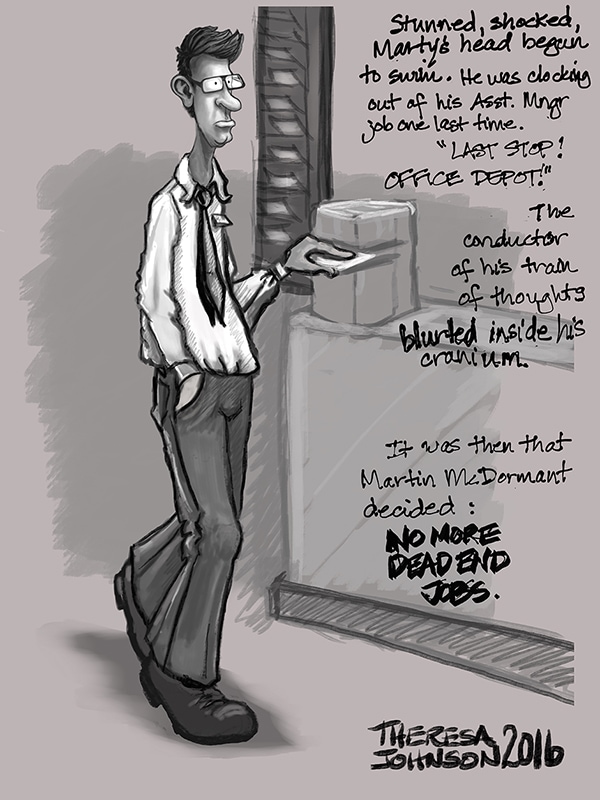 Stunned, shocked,
Marty's head begun
to swim. He was clocking
out of his Asst. Mngr
job one last time.
"LAST STOP!
OFFICE DEPOT!"
The
conductor
of his train
of thoughts
blurted inside his
cranium.
It was then that
Martin McDormant
decided :
NO MORE
DEAD END
JOBS.
THERESA
JOHNSON 2016